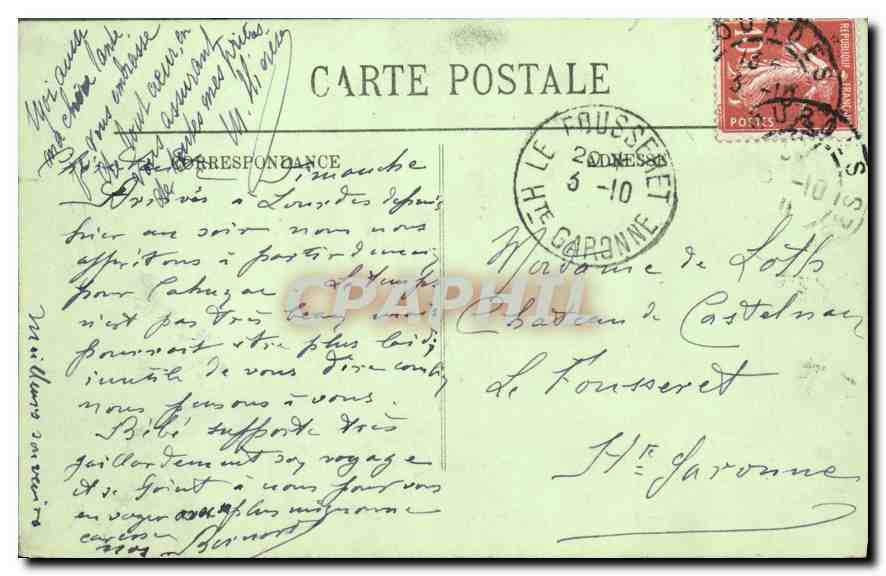 Moi aussi
ma chère tante
je vous embrasse
de tout cœur, en
vous assurant
de toutes mes prières.
CARTE POSTALE
CORRESPONDANCE
ADRESSE
REPUBLIQUE FRANÇAISE
10
POSTES
LOURDES
LE FOUSSERET
20
3 -10
HTE GARONNE
Dimanche
Arrivés à Lourdes depuis
hier au soir nous nous
apprêtons à partir demain
pour Cahuzac Le temps
n'est pas très beau mais
pourrait être plus laid,
inutile de vous dire combien
nous pensons à vous.
Bébé supporte très
gaillardement son voyage
et se joint à nous pour vous
envoyer plus mignonne
caresse
Bernard
Meilleurs souvenirs
Madame de Loth
Château de Castelnau
Le Fousseret
Hte Garonne
CPAPHIL